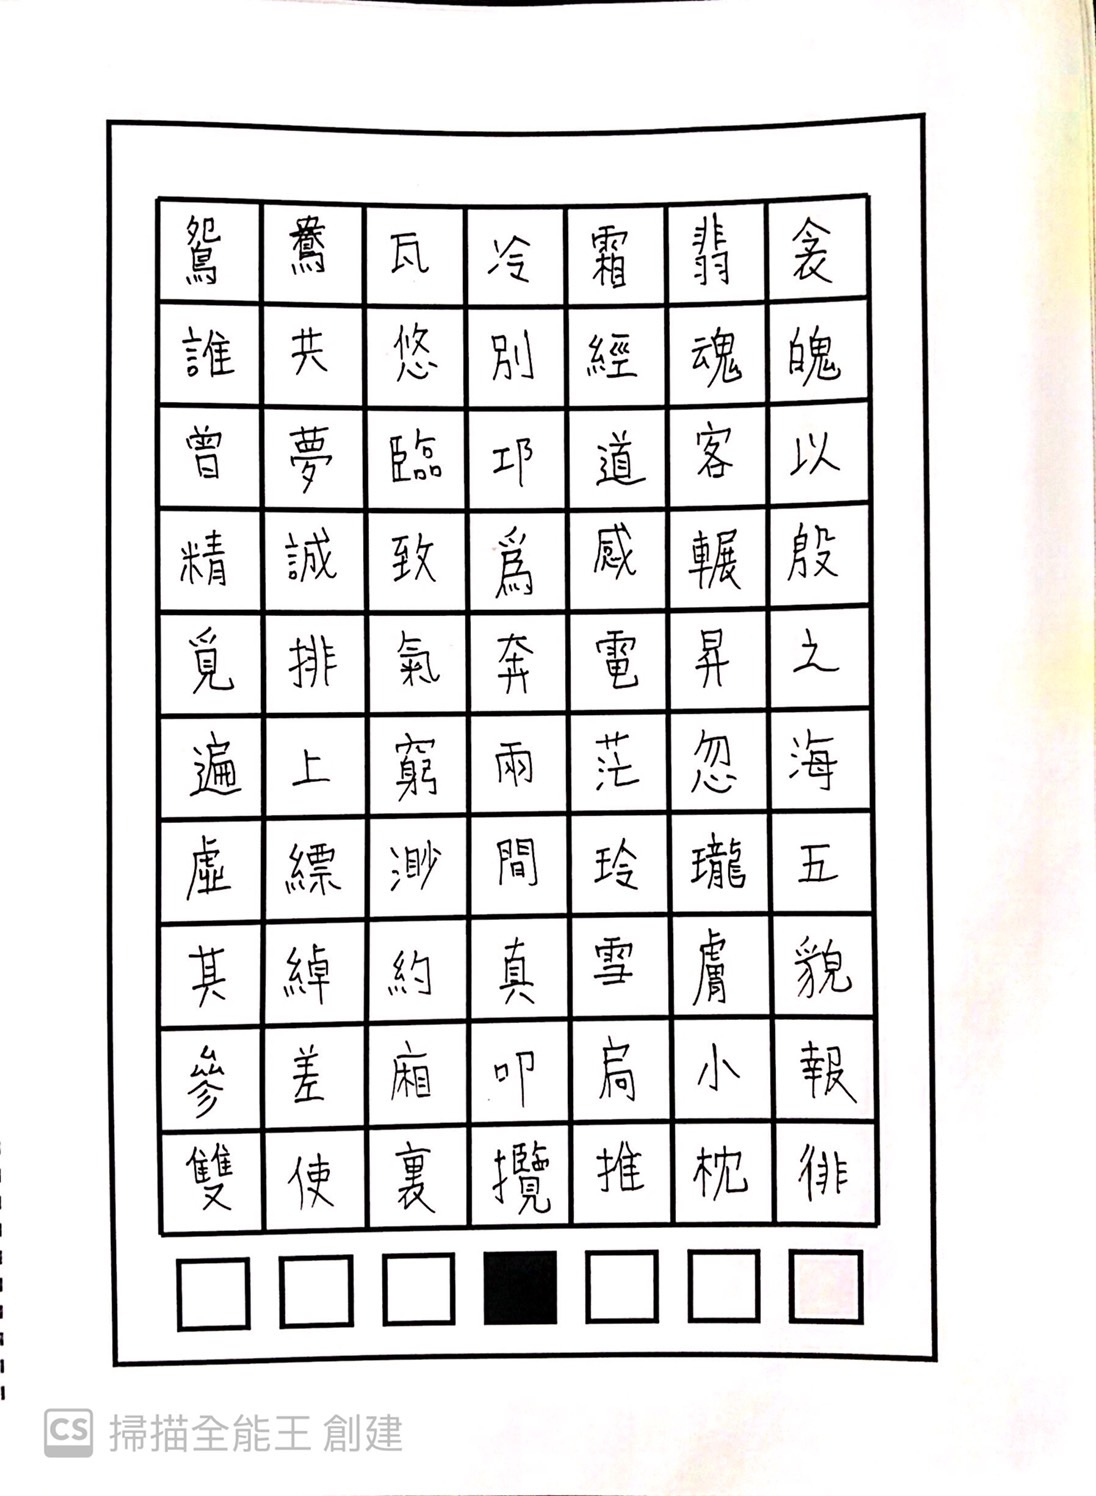 鴛鴦瓦冷霜翡衾
誰共悠別經魂魄
曾夢臨邛道客以
精誠致爲感輾殷
覓排氣奔電昇之
遍上窮兩茫忽海
虛縹渺間玲瓏五
其綽約真雪膚貌
參差廂叩扃小報
雙使裏攬推枕徘
CS 掃描全能王 創建